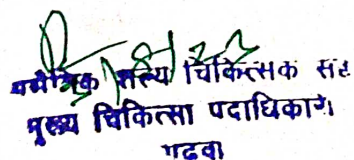 शल्य चिकित्सक सह
मुख्य चिकित्सा पदाधिकारी
गढवा